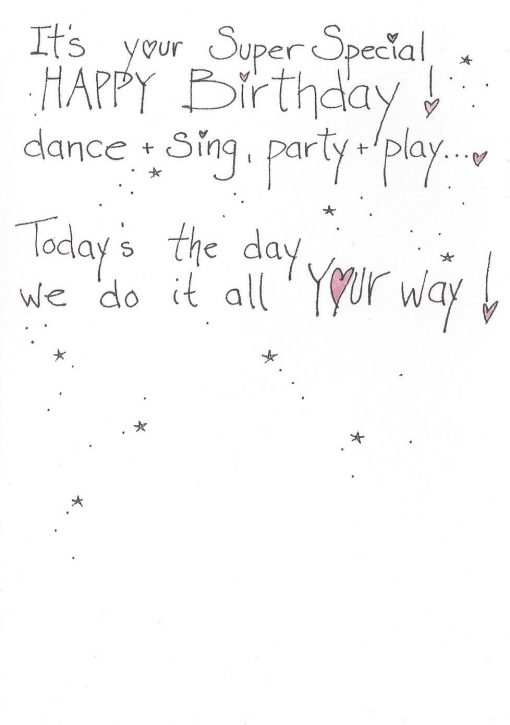 It's your Super Special
HAPPY Birthday!
dance + sing, party + play...
Today's the day
we do it all Your way!